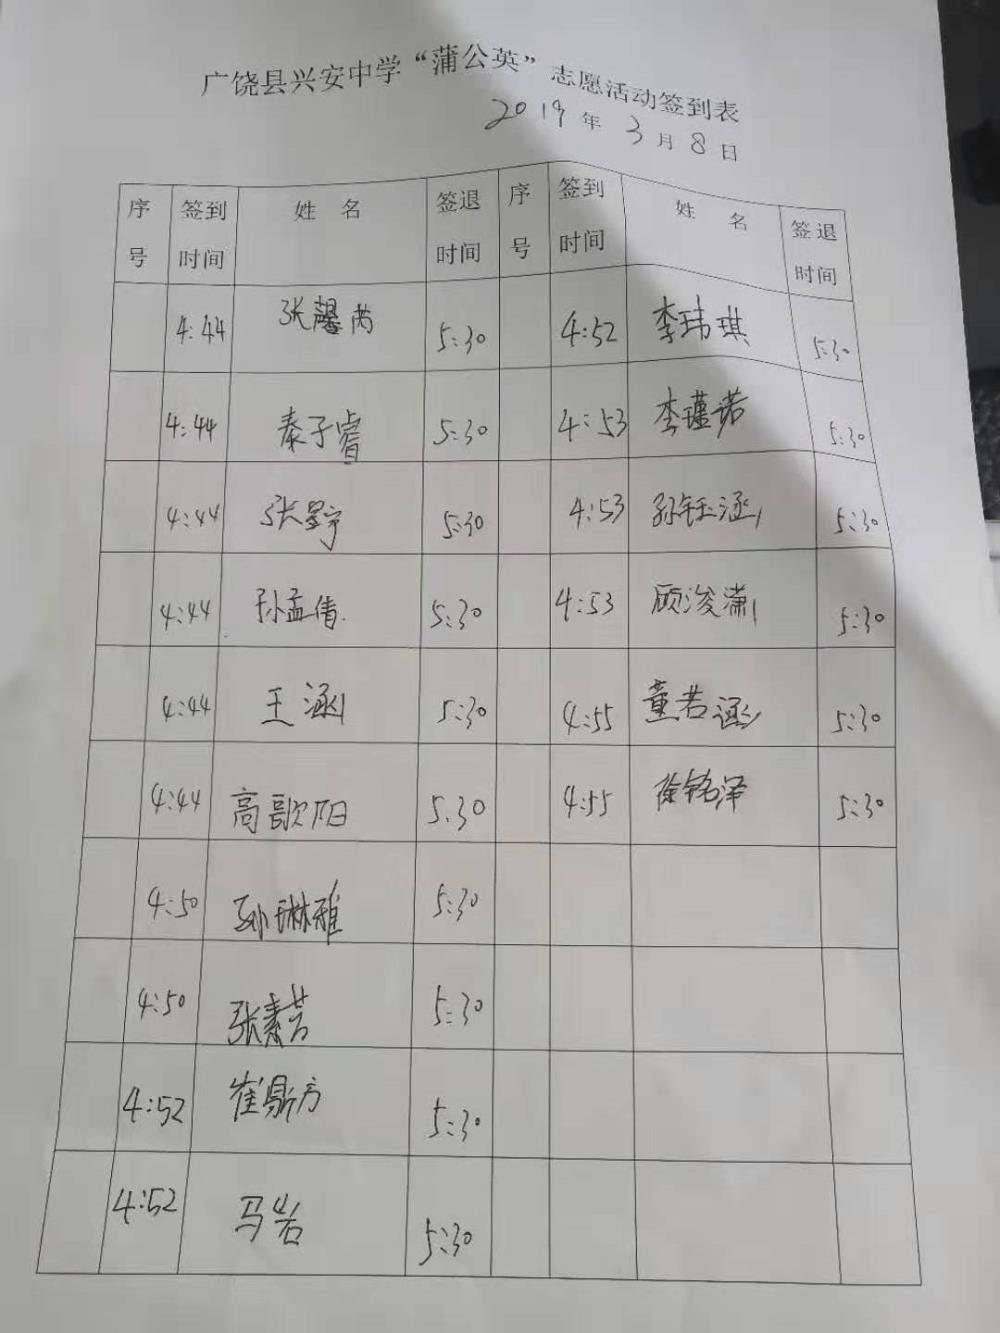 广饶县兴安中学“蒲公英”志愿活动签到表
2019年3月8日
序号 签到时间 姓名 签退时间 序号 签到时间 姓名 签退时间
4:44 张馨芮 5:30 4:52 李玮琪 5:30
4:44 秦子睿 5:30 4:53 李瑾诺 5:30
4:44 张 5:30 4:53 孙钰涵 5:30
4:44 孙孟倩 5:30 4:53 顾浚潇 5:30
4:44 王涵 5:30 4:55 董若涵 5:30
4:44 高歌阳 5:30 4:55 徐铭泽 5:30
4:50 孙琳雅 5:30
4:50 张素芳 5:30
4:52 崔鼎方 5:30
4:52 马岩 5:30